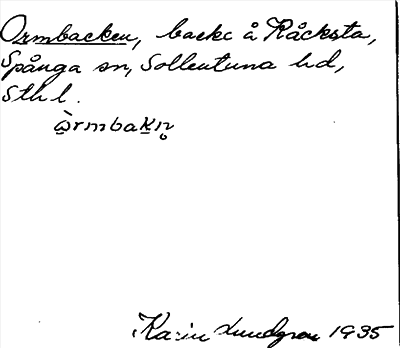 Ormbacken, backe å Råcksta,
Spånga sn, Sollentuna hd,
Sthl.
ò̤rmbaḵn̥
Karin Lundgren 1935